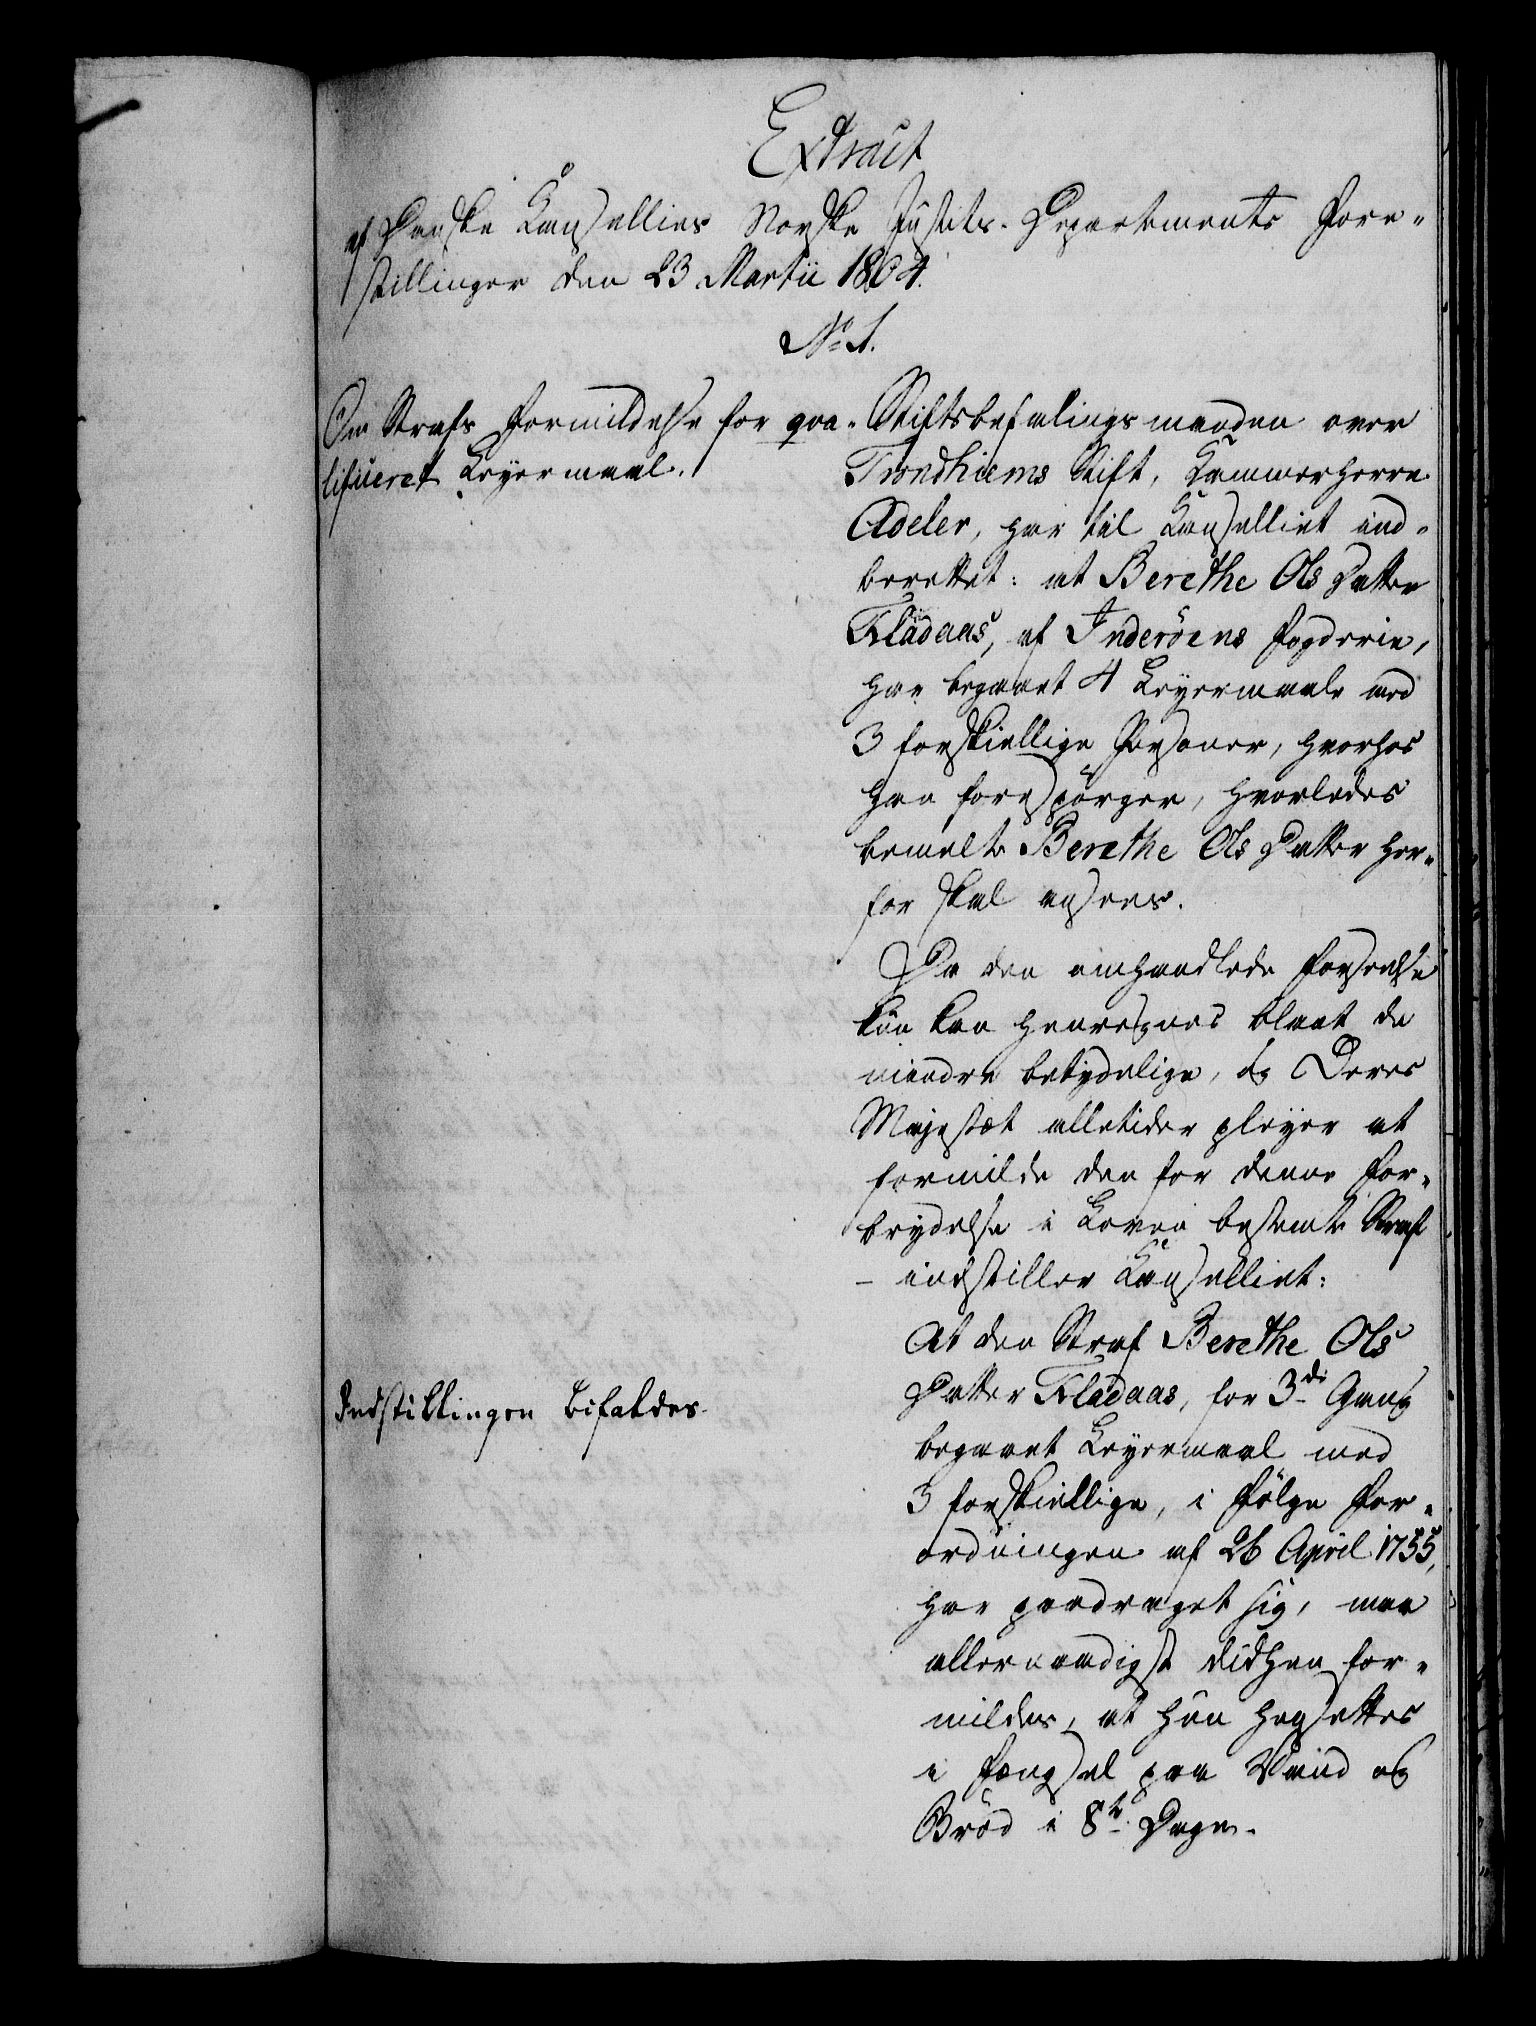 Extract
af Danske Cancellies Norske Justits-Departements Fore-
stillinger den 23 Martii 1804.
No 1.
Om Strafs Formildelse for qva-
lificeret Leyermaal.
Stiftsbefalingsmanden over
Trondhiems Stift, Kammerherre
Adeler, har til Cancelliet ind-
berettet: at Berethe Ols Datter
Fladaas, af Inderöens Fogderie,
har begaaet 4 Leyermaale med
3 forskiellige Personer, hvorhos
han forespörger, hvorledes
bemelte Berethe Ols Datter her-
for skal ansees.
Da den omhandlede Forseelse
kun kan henregnes blant de
mindre betydelige, og Deres
Majestæt alletider pleyer at
formilde den for denne For-
brydelse i Loven bestemte Straf
- indstiller Cancelliet:
At den Straf Berethe Ols
Datter Fladaas, for 3de Gang
begaaet Leyermaal med
3 forskiellige, i Fölge For-
ordningen af 26 April 1755,
har paadraget sig, maa
allernaadigst didhen for-
mildes, at hun hensettes
i Fængsel paa Vand og
Bröd i 8te Dage.
Indstillingen bifaldes.